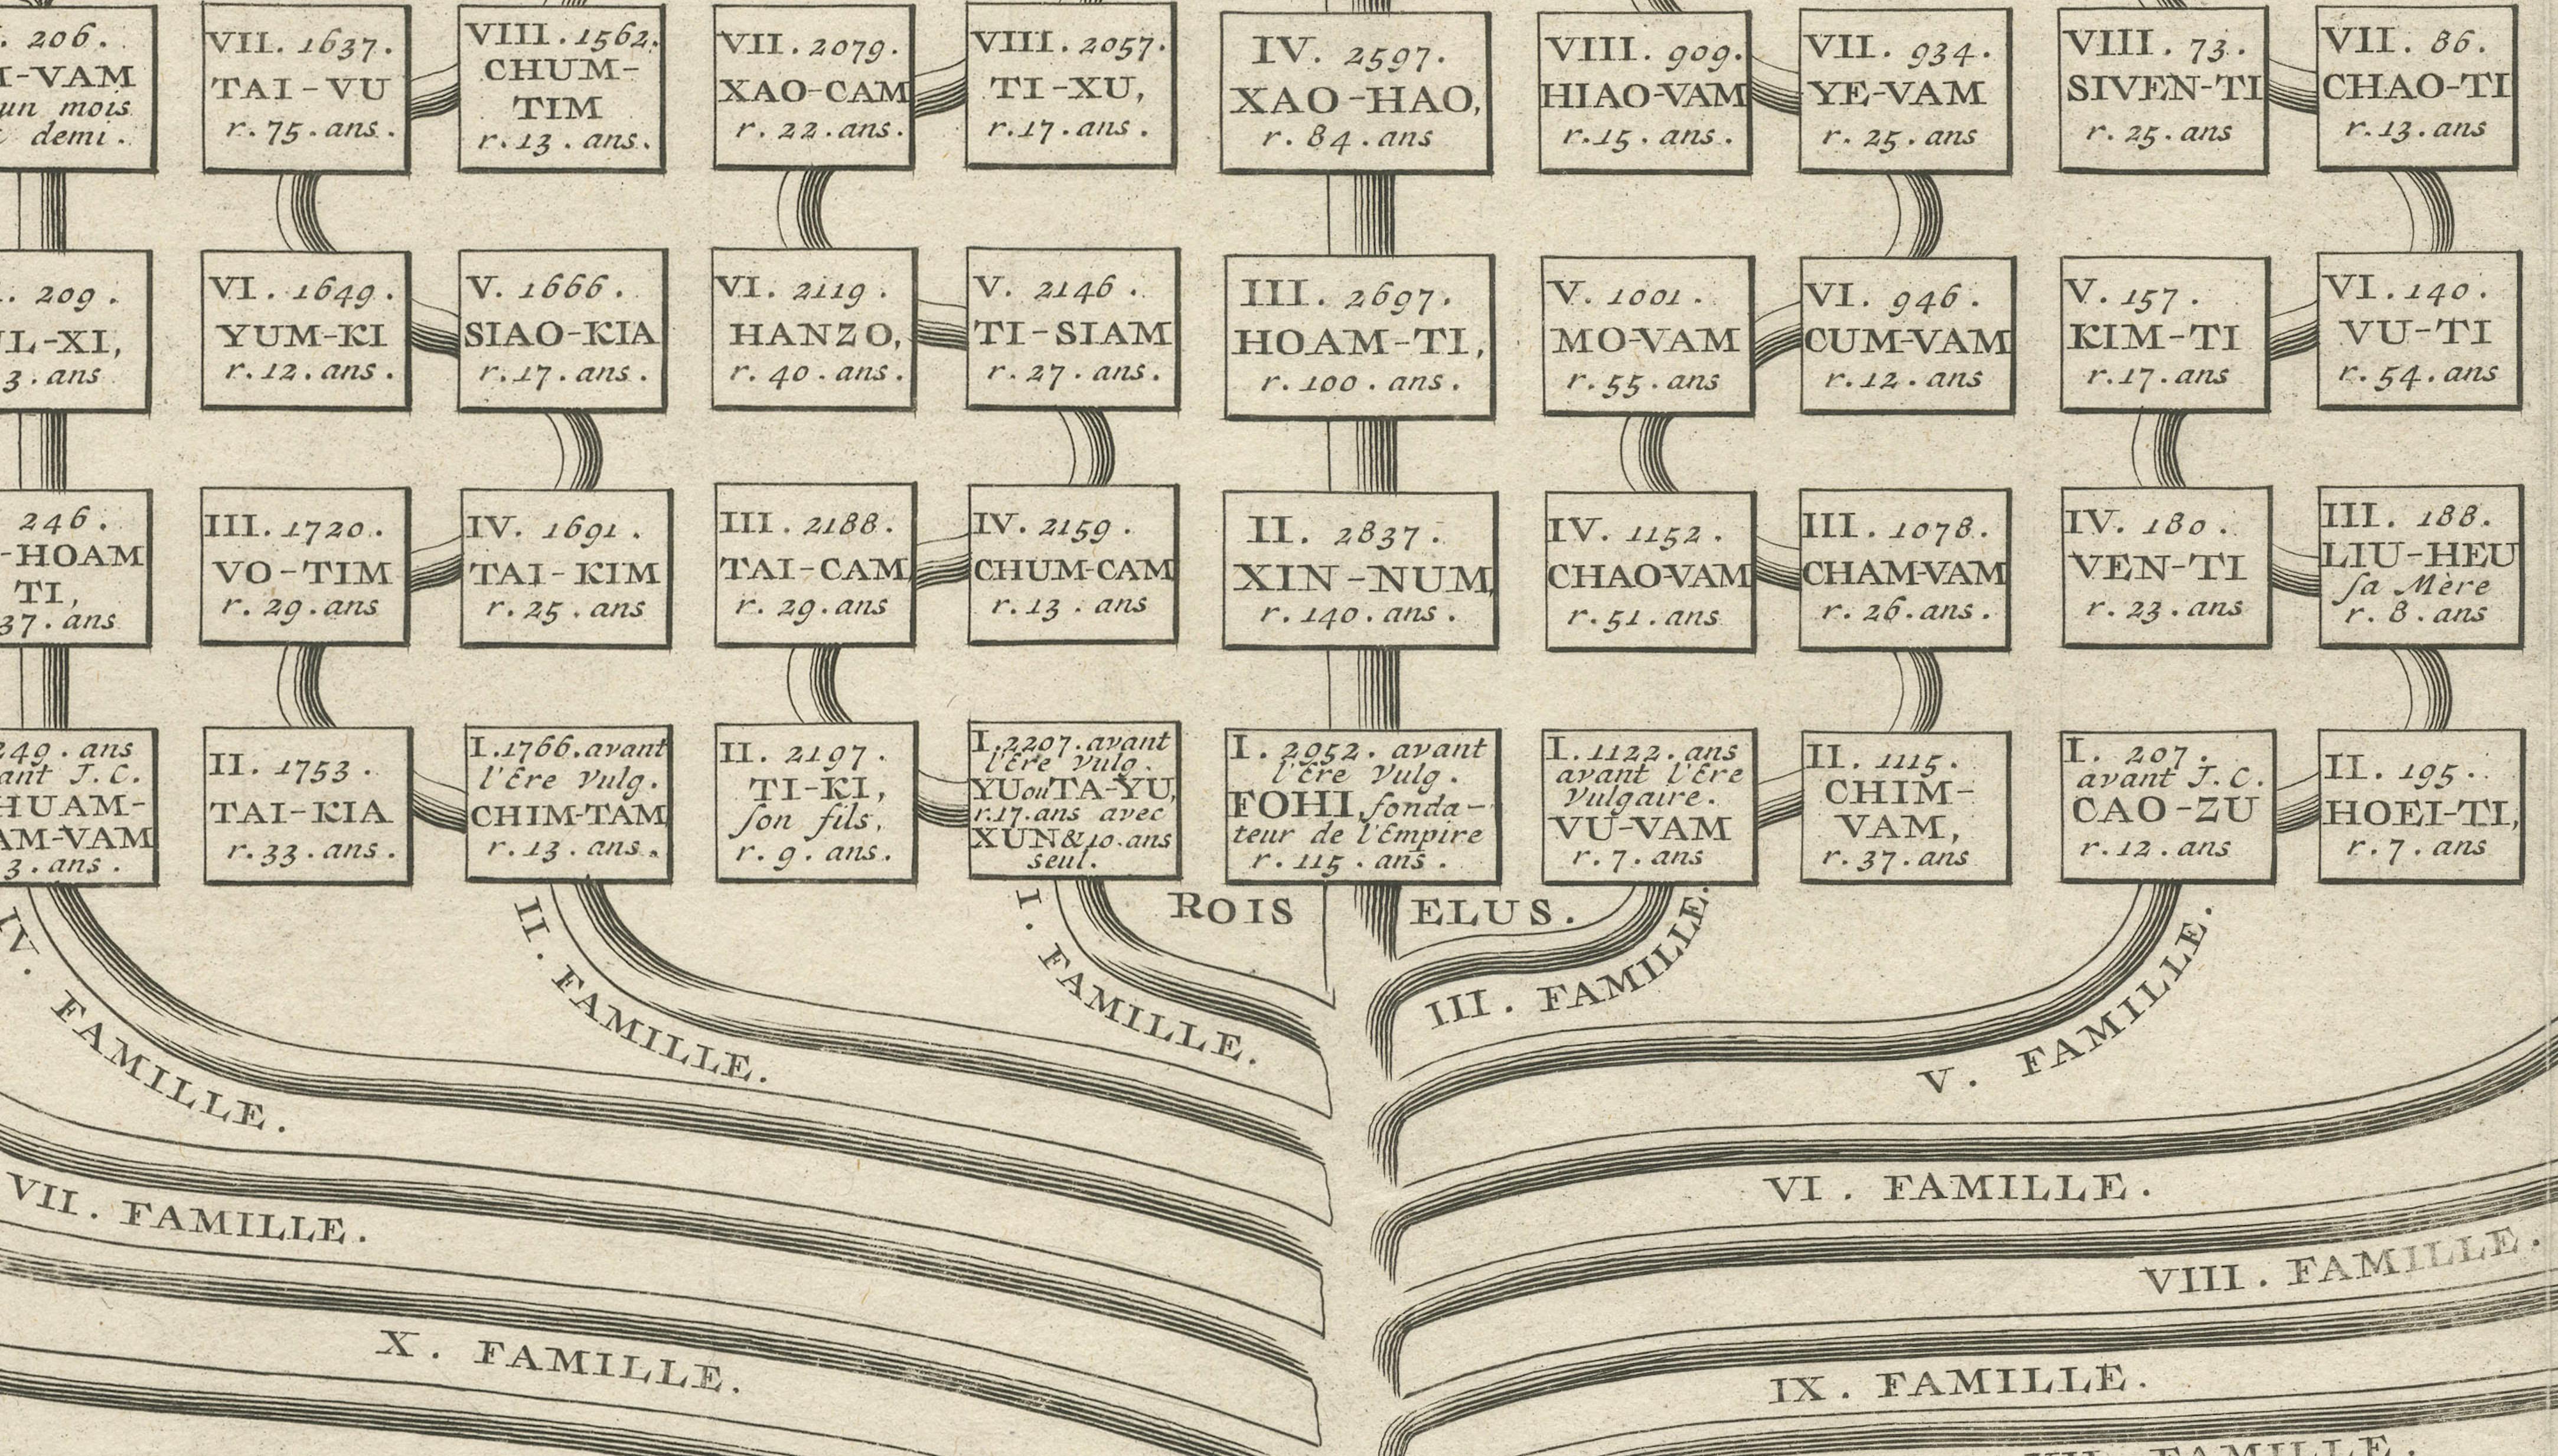 . 206.
I-VAM
un mois
demi.
VII. 1637.
TAI-VU
r. 75. ans.
VIII. 1562.
CHUM-
TIM
r. 13. ans.
VII. 2079.
XAO-CAM
r. 22. ans.
VIII. 2057.
TI-XU,
r. 17. ans.
IV. 2597.
XAO-HAO,
r. 84. ans
VIII. 909.
HIAO-VAM
r. 15. ans.
VII. 934.
YE-VAM
r. 25. ans
VIII. 73.
SIVEN-TI
r. 25. ans
VII. 86.
CHAO-TI
r. 13. ans
. 209.
L-XI,
3. ans
VI. 1649.
YUM-KI
r. 12. ans.
V. 1666.
SIAO-KIA
r. 17. ans.
VI. 2119.
HANZO,
r. 40. ans.
V. 2146.
TI-SIAM
r. 27. ans.
III. 2697.
HOAM-TI,
r. 100. ans.
V. 1001.
MO-VAM
r. 55. ans
VI. 946.
CUM-VAM
r. 12. ans
V. 157.
KIM-TI
r. 17. ans
VI. 140.
VU-TI
r. 54. ans
246.
-HOAM
TI,
37. ans
III. 1720.
VO-TIM
r. 29. ans
IV. 1691.
TAI-KIM
r. 25. ans
III. 2188.
TAI-CAM
r. 29. ans
IV. 2159.
CHUM-CAM
r. 13. ans
II. 2837.
XIN-NUM,
r. 140. ans.
IV. 1152.
CHAO-VAM
r. 51. ans
III. 1078.
CHAM-VAM
r. 26. ans.
IV. 180.
VEN-TI
r. 23. ans
III. 188.
LIU-HEU
sa Mère
r. 8. ans
249. ans
ant J. C.
HUAM-
AM-VAM
3. ans.
II. 1753.
TAI-KIA
r. 33. ans.
I. 1766. avant
l'Ere Vulg.
CHIM-TAM,
r. 13. ans.
II. 2197.
TI-KI,
son fils,
r. 9. ans.
I. 2207. avant
l'Ere Vulg.
YU ou TA-YU,
r. 17. ans avec
XUN & 10. ans
seul.
I. 2952. avant
l'Ere Vulg.
FOHI, fonda-
teur de l'Empire
r. 115. ans.
I. 1122. ans
avant l'Ere
Vulgaire.
VU-VAM
r. 7. ans
II. 1115.
CHIM-
VAM,
r. 37. ans
I. 207.
avant J. C.
CAO-ZU
r. 12. ans
II. 195.
HOEI-TI,
r. 7. ans
ROIS ELUS.
IV. FAMILLE.
II. FAMILLE.
I. FAMILLE.
III. FAMILLE.
V. FAMILLE.
VII. FAMILLE.
VI. FAMILLE.
VIII. FAMILLE.
X. FAMILLE.
IX. FAMILLE.
FAMILLE.